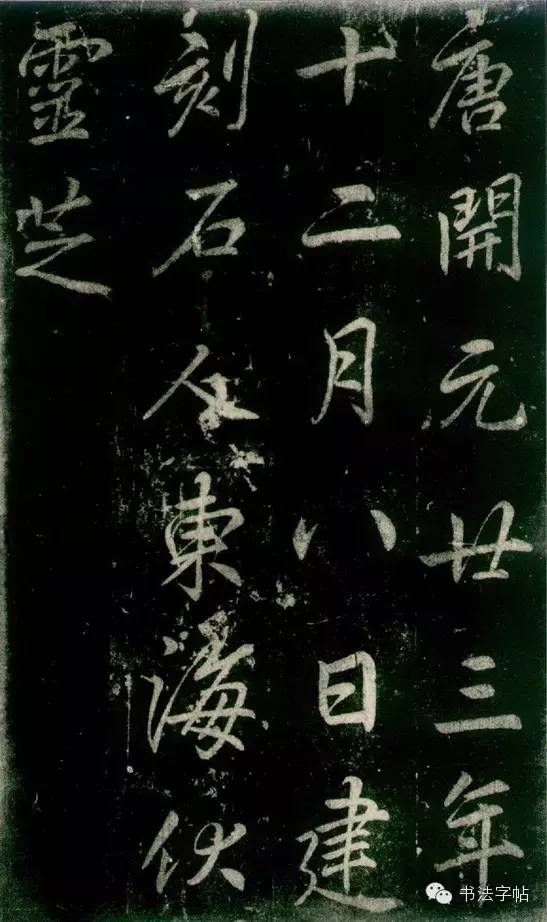 唐開元廿三年
十二月八日建
刻石人東海伏
靈芝
书法字帖